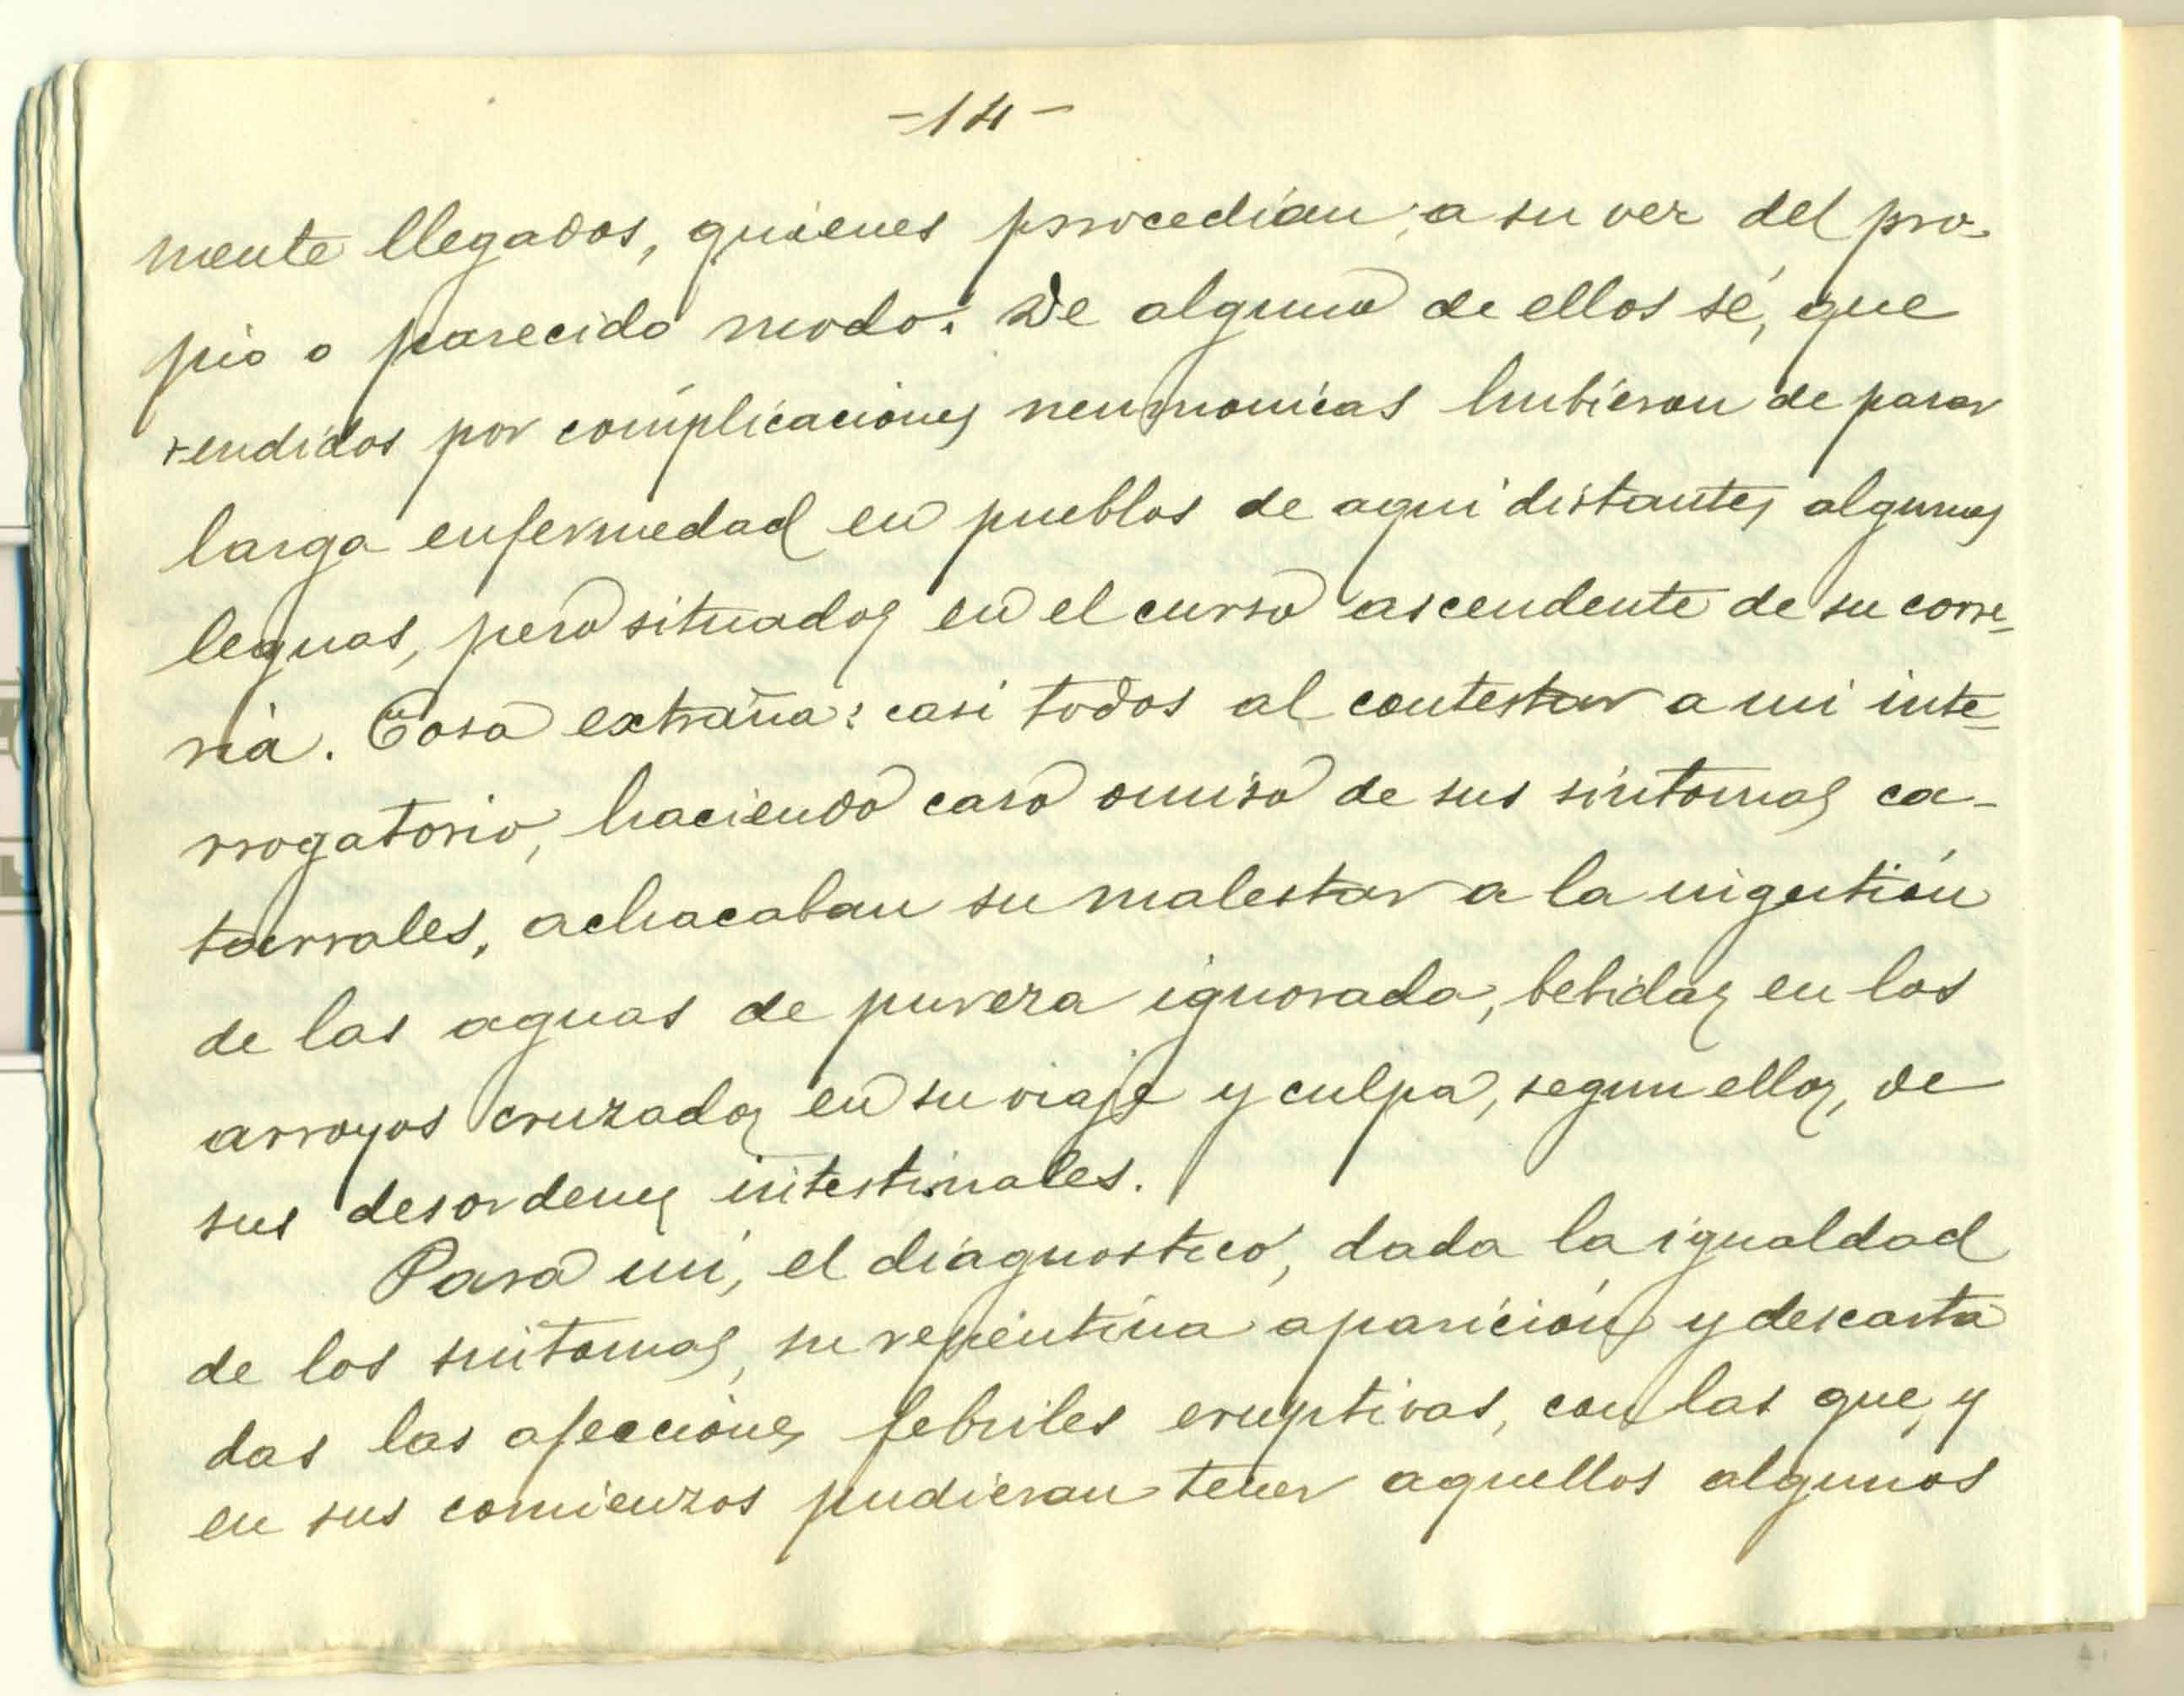 -14-
mente llegados, quienes procedian a su vez del pro-
pio o parecido modo. De alguno de ellos sé, que
rendidos por complicaciones neumonicas hubieron de pasar
larga enfermedad en pueblos de aqui distantes algunas
leguas, pero situados en el curso ascendente de su corre-
ria. Cosa extraña: casi todos al contestar a mi inte-
rrogatorio, haciendo caso omiso de sus síntomas ca-
tarrales, achacaban su malestar a la ingestión
de las aguas de pureza ignorada, bebidas en los
arroyos cruzados en su viaje y culpa, segun ellos, de
sus desordenes intestinales.
Para mi, el diagnostico, dada la igualdad
de los sintomas, su repentina aparición y descarta
das las afecciones febriles eruptivas, con las que, y
en sus comienzos pudieran tener aquellos algunos